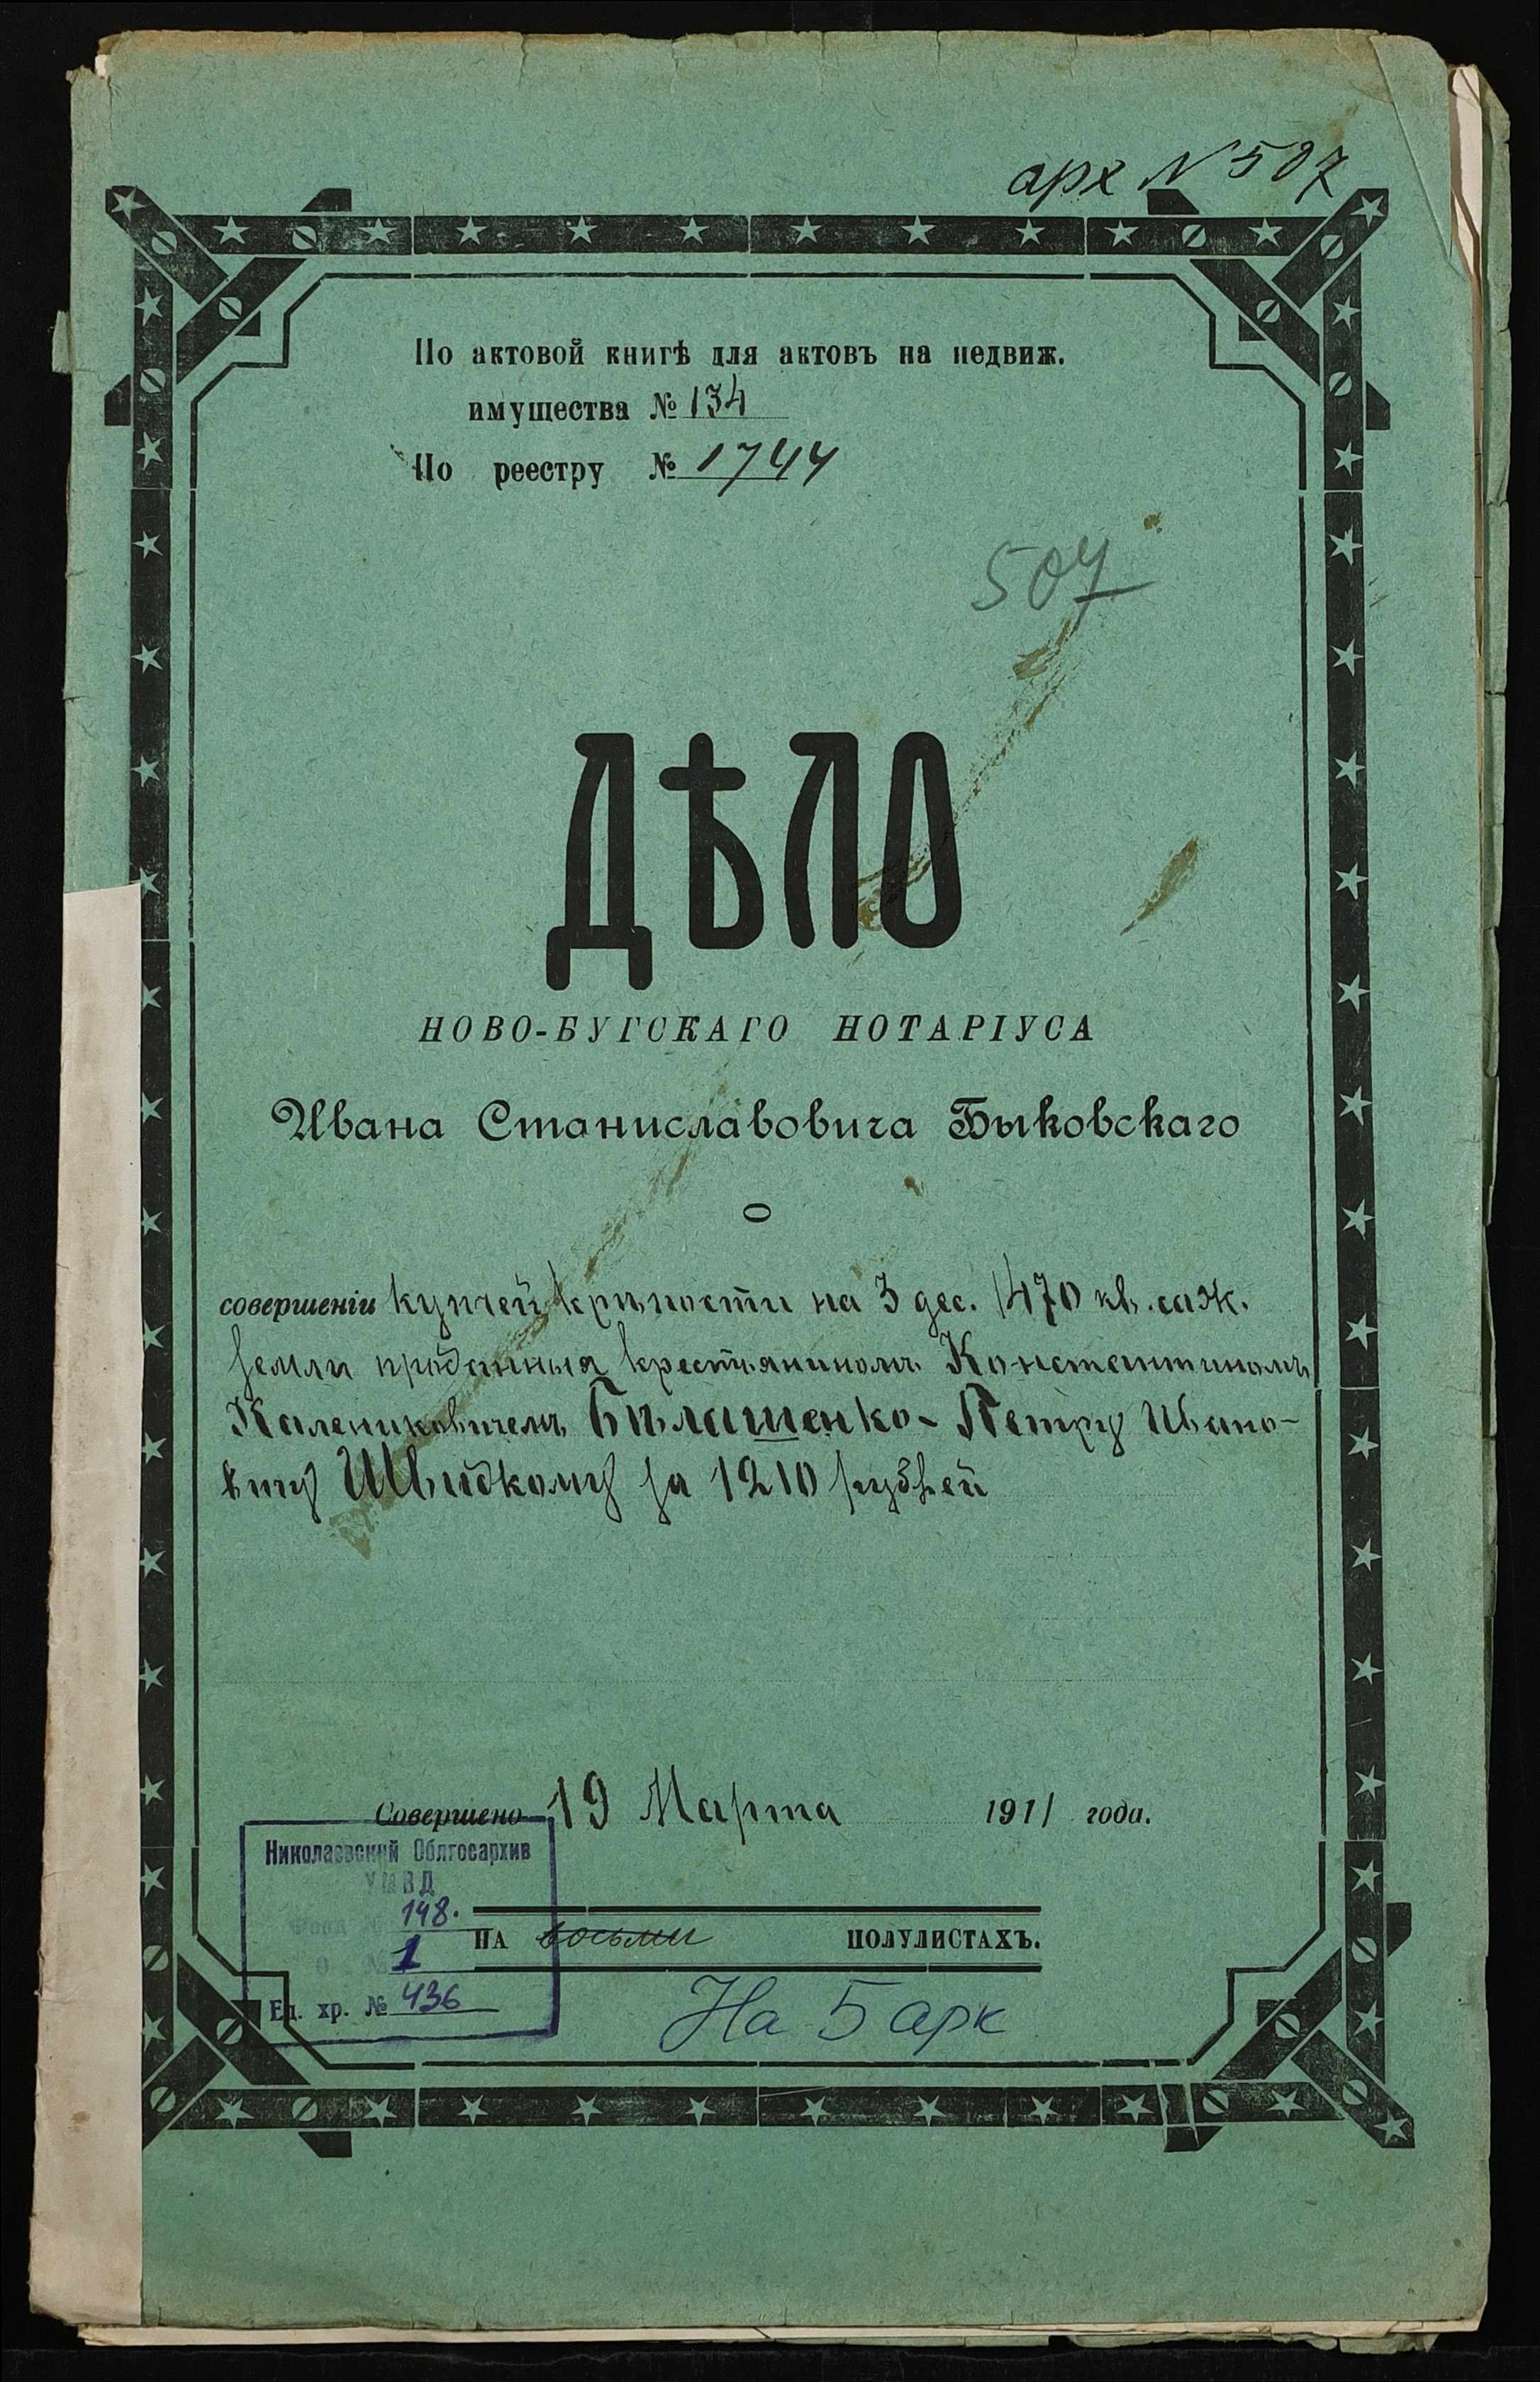 арх N 507
По актовой книгѣ для актовъ на недвиж.
имущества № 134
По реестру № 1744
507
ДѢЛО
НОВО-БУГСКАГО НОТАРІУСА
Ивана Станиславовича Быковскаго
О
совершеніи купчей крѣпости на 3 дес. 1470 кв. саж.
земли проданныя крестьяниномъ Константиномъ
Калениковичемъ Бѣлашенко - Петру Ивано-
вичу Швидкому за 1210 рублей
Совершено 19 Марта 1911 года.
Николаевский Облгосархив
УМВД
Фонд № 148.
О. № 1
Ед. хр. № 436
НА восьми ПОЛУЛИСТАХЪ.
На 5 арк